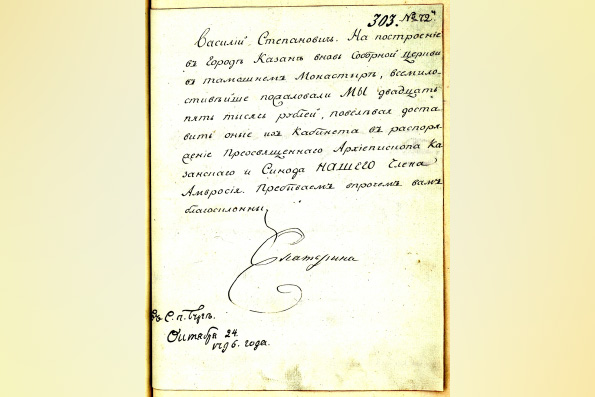 303. № 72й
Василій Степановичь. На построеніе
въ городѣ Казанѣ вновь Соборной церкви
въ тамошнемъ Монастырѣ, всемило-
стивѣйше пожаловали МЫ двадцать
пять тысячь рублей, повелѣвая доста-
вить оные изъ Кабинета въ распоря-
женіе Преосвященнаго Архіепископа Ка-
занскаго и Синода НАШЕГО Члена
Амвросія. Пребываемъ впрочемъ вамъ
благосклонны
Екатерина
въ С. п. бургѣ.
Октября 24.
1796. года.